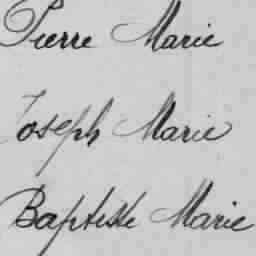 Pierre Marie
Joseph Marie
Baptiste Marie